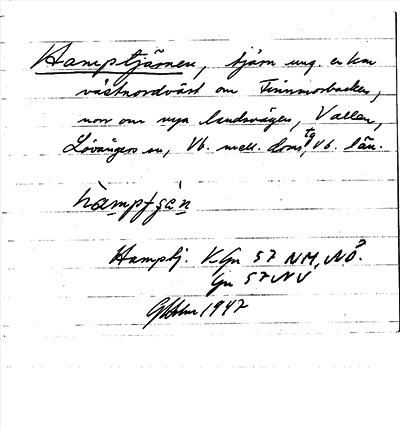 Hamptjärnen, tjärn ung. en km
västnordväst om Finnmorbacken,
norr om nya landsvägen, Vallen,
Lövångers sn, Vb. mell. doms tg, Vb. län.
Hamptj. K Gn 57 NM, NÖ?
Gn 57 NV
1947